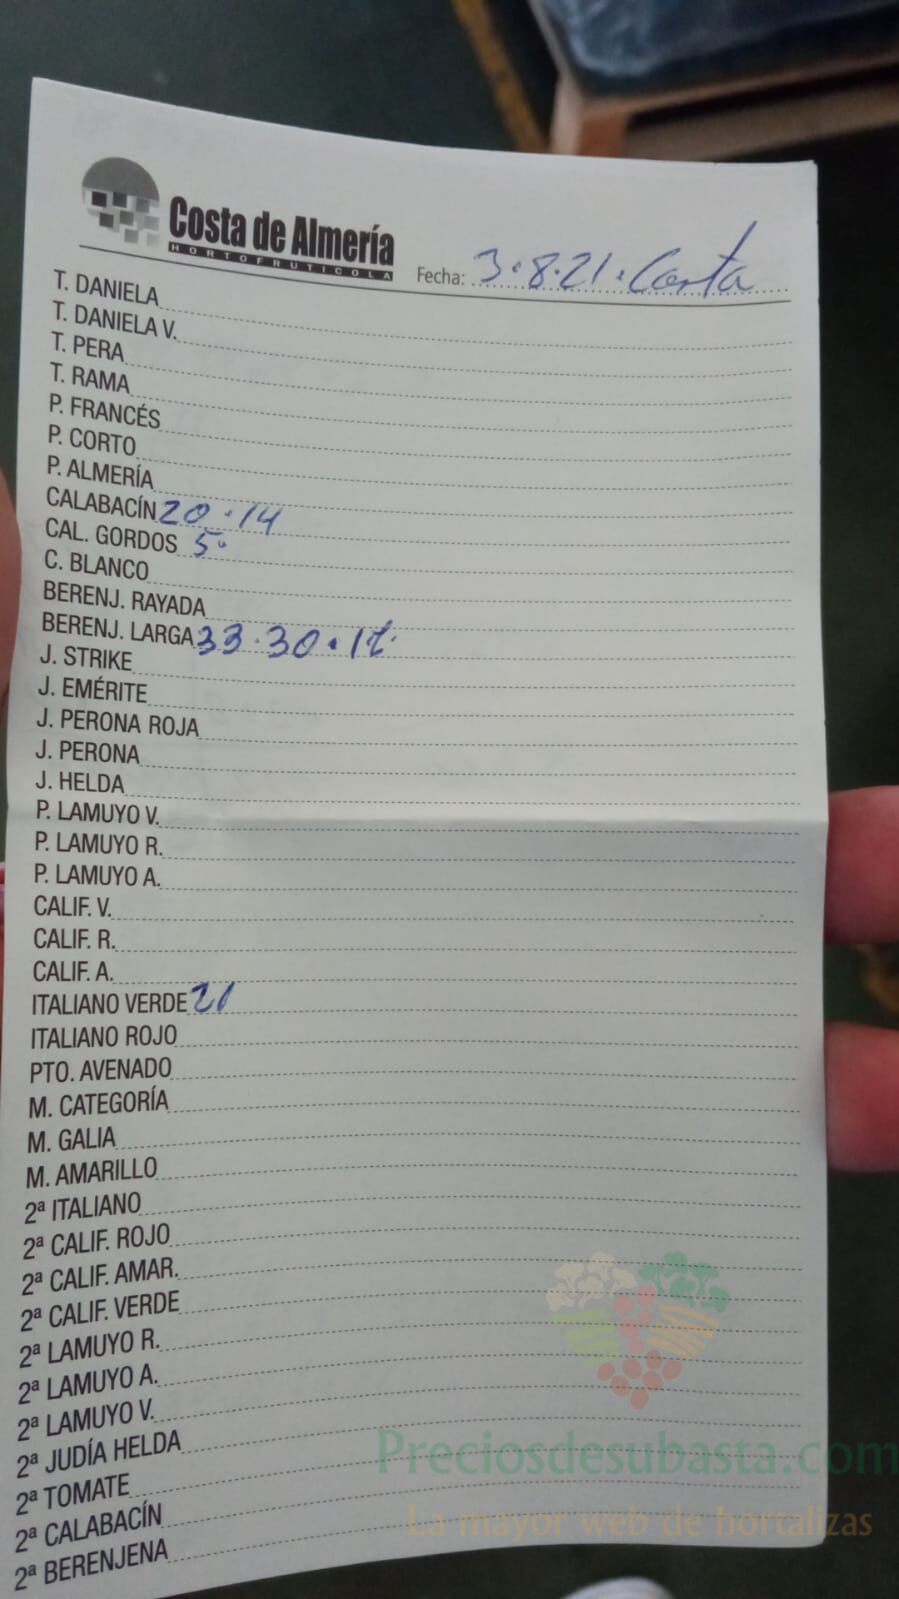 Costa de Almería
HORTOFRUTICOLA
Fecha: 3·8·21·Costa
T. DANIELA
T. DANIELA V.
T. PERA
T. RAMA
P. FRANCÉS
P. CORTO
P. ALMERÍA
CALABACÍN 20·14
CAL. GORDOS 5·
C. BLANCO
BERENJ. RAYADA
BERENJ. LARGA 33·30·
J. STRIKE
J. EMÉRITE
J. PERONA ROJA
J. PERONA
J. HELDA
P. LAMUYO V.
P. LAMUYO R.
P. LAMUYO A.
CALIF. V.
CALIF. R.
CALIF. A.
ITALIANO VERDE 21
ITALIANO ROJO
PTO. AVENADO
M. CATEGORÍA
M. GALIA
M. AMARILLO
2ª ITALIANO
2ª CALIF. ROJO
2ª CALIF. AMAR.
2ª CALIF. VERDE
2ª LAMUYO R.
2ª LAMUYO A.
2ª LAMUYO V.
2ª JUDÍA HELDA
2ª TOMATE
2ª CALABACÍN
2ª BERENJENA
Preciosdesubasta.com
La mayor web de hortalizas